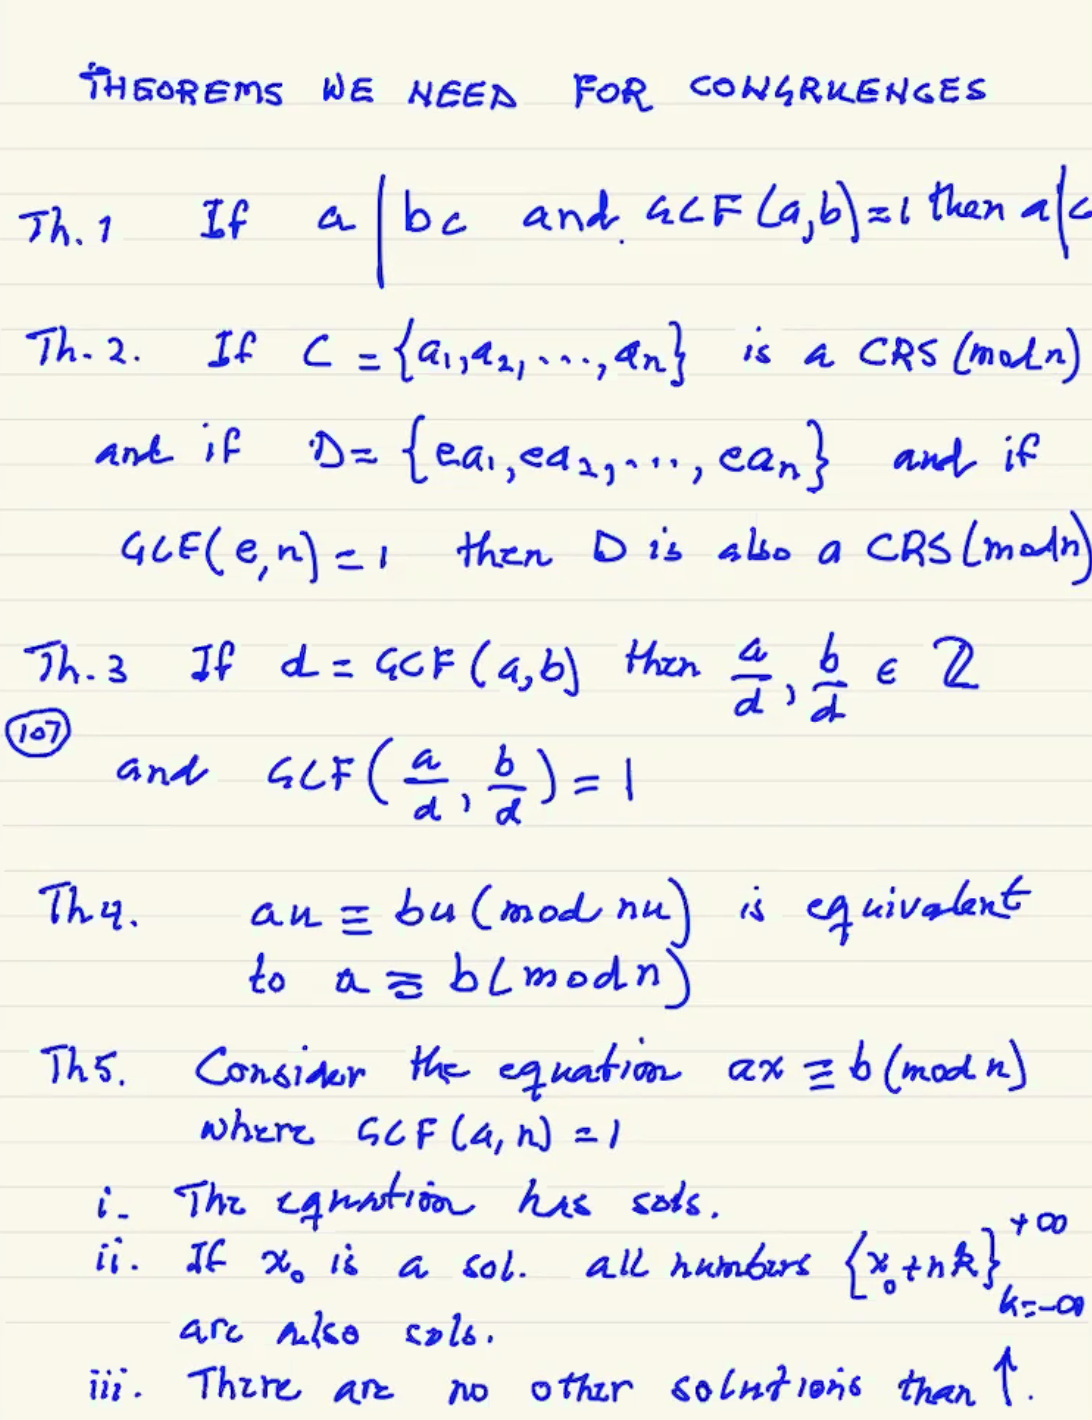 THEOREMS WE NEED FOR CONGRUENCES
Th.1 If a | bc and GCF(a,b)=1 then a|c
Th.2. If C = {a₁,a₂,...,aₙ} is a CRS (mod n)
and if D = {ea₁,ea₂,...,eaₙ} and if
GCF(e,n)=1 then D is also a CRS (mod n)
Th.3 If d = GCF(a,b) then a/d, b/d ∈ ℤ
107
and GCF(a/d, b/d) = 1
Th4. au ≡ bu (mod nu) is equivalent
to a ≡ b (mod n)
Th5. Consider the equation ax ≡ b (mod n)
where GCF(a,n)=1
i. The equation has sols.
ii. If x₀ is a sol. all numbers {x₀+nk} +∞ k=-∞
are also sols.
iii. There are no other solutions than ↑.